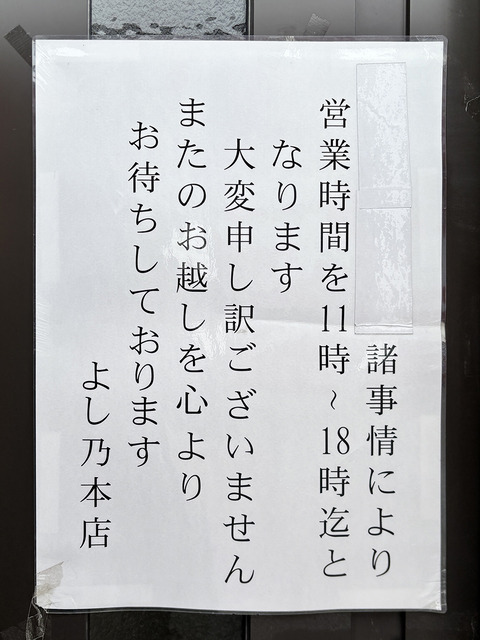 諸事情により
営業時間を11時～18時迄と
なります
大変申し訳ございません
またのお越しを心より
お待ちしております
よし乃本店